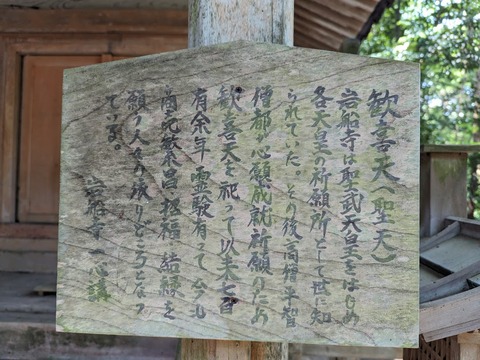 歓喜天(聖天)
岩船寺は聖武天皇をはじめ
各天皇の祈願所として世に知
られていた。その後高僧平智
僧都 心願成就祈願のため
歓喜天を祀って以来七百
有余年 霊験有って 今も
商売繁昌 招福 結縁を
願う人々の拠りどころとなっ
ている。
岩船寺一心講